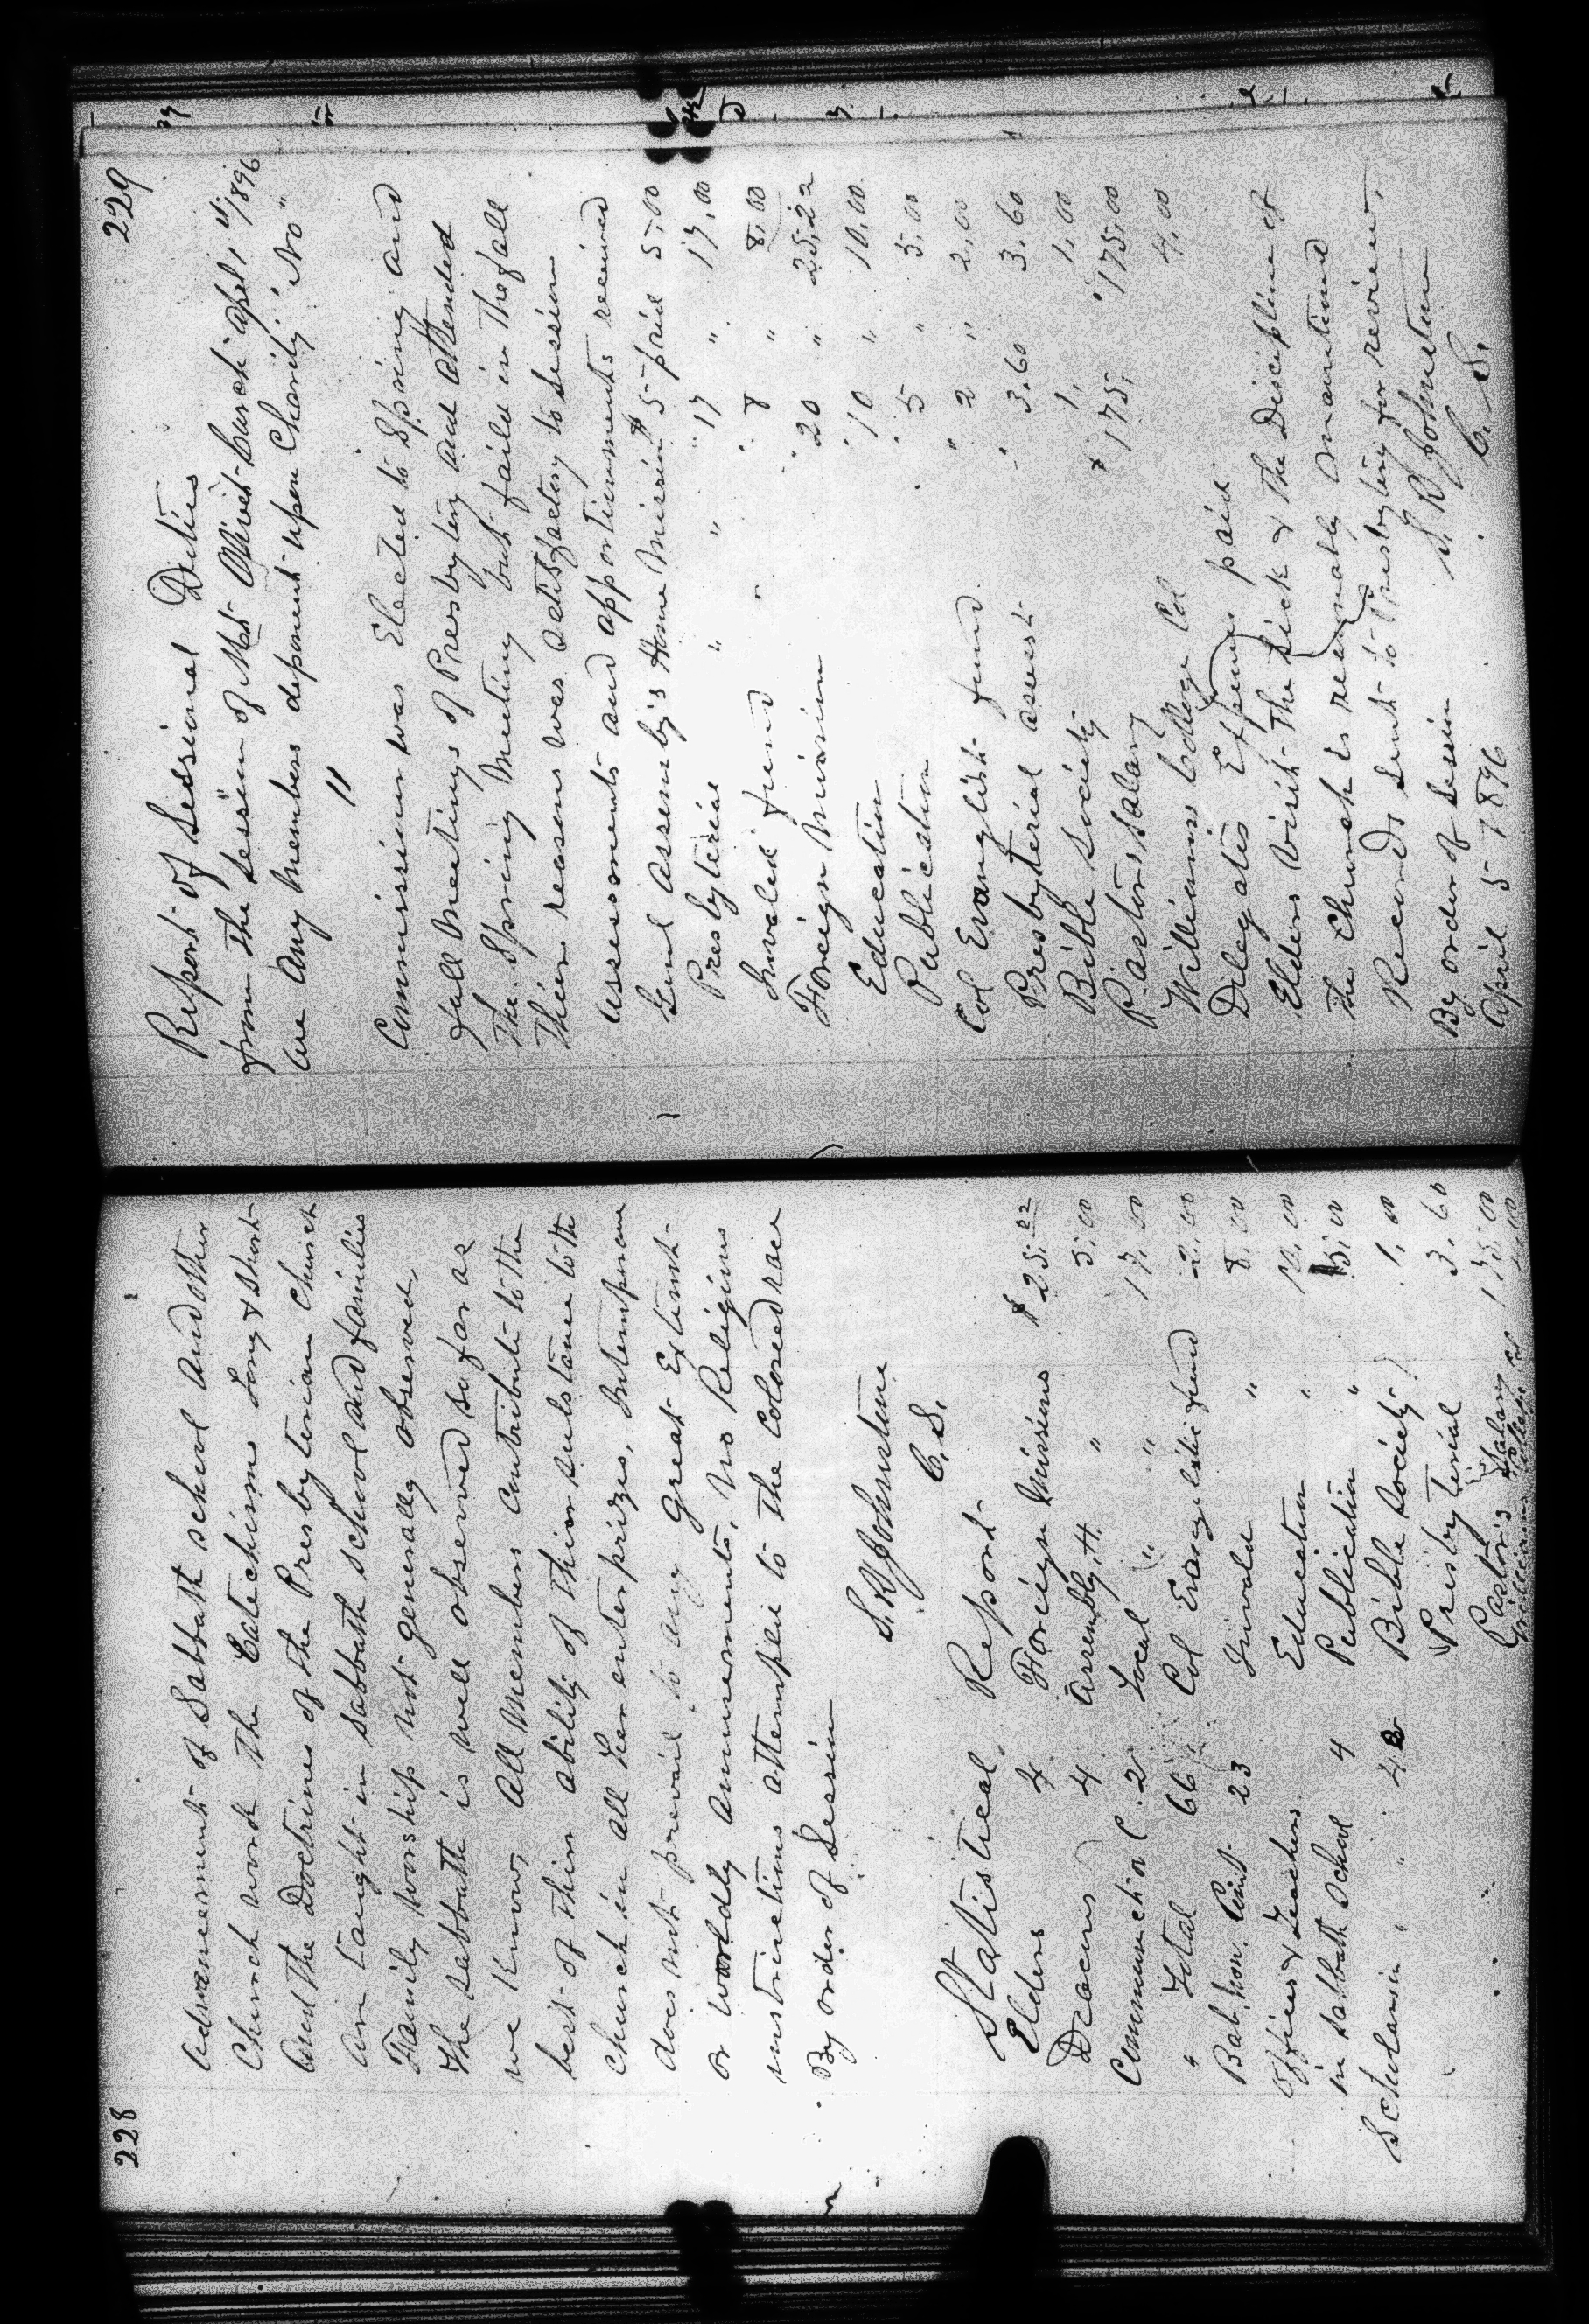 228
Advancement of Sabbath school and other
Church work The Catechisms Long & Short
and the Doctrines of the Presbyterian Church
are taught in Sabbath school and families
Family worship not generally observed,
The Sabbath is well observed so far as
we know, All Members contribute to the
best of their ability of their substance to the
Church in all her enterprizes, Intemperance
does not prevail to any great Extent
or worldly amusements, no Religious
instructions attempted to the Colored race
By order of Session
S. R. Johnston
C. S.
Statistical Report
Elders 4 Foreign Missions $25.22
Deacons 4 Assembly H. " 5.00
Communicants 2 Local " " 17.00
" Total 66 Col Evangelistic fund 2.00
Bap. Non. Com. 23 Invalid " 8.00
Officers & Teachers Education " 10.00
in Sabbath School 4 Publication " 5.00
Scholars in " " 42 Bible Society 1.00
Presbyterial 3.60
Pastor's Salary 175.00
Williams College Col 4.00
229
Report of Sessional Duties
from the Session of Mt Olivet Church Apl, 4/1896
Are Any Members deponent upon Charity "No"
"
Commissioner was Elected to Spring and
fall Meetings of Presbytery and attended
The Spring Meeting but faild in the fall
Their reasons was satisfactory to Session
Assessments and apportiunments received
Genl Assembly's Home Mission $5 paid 5.00
Presbyterial " " 17 " 17.00
Invaled fund " 8 " 8.00
Foreign Mission 20 " 25.22
Education 10 " 10.00
Publication 5 " 5.00
Col Evanglist fund 2 " 2.00
Presbyterial assest 3.60 3.60
Bible Society 1. 1.00
Pastors Salary $175. 175.00
Williams College Col 4.00
Dilegates Expenses paid
Elders visit The Sick & The Discipline of
The Church is reasonably maintained
Records sent to Presbytery for review.
By order of Session S. R. Johnston
April 5 - 1896 C. S.